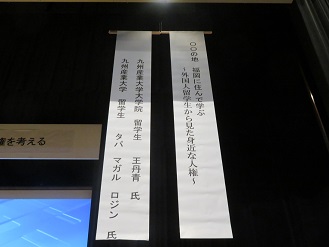 〇〇の地 福岡に住んで学ぶ
～外国人留学生から見た身近な人権～
九州産業大学大学院 留学生 王丹青 氏
九州産業大学 留学生 タパ マガル ロジン 氏
を考える